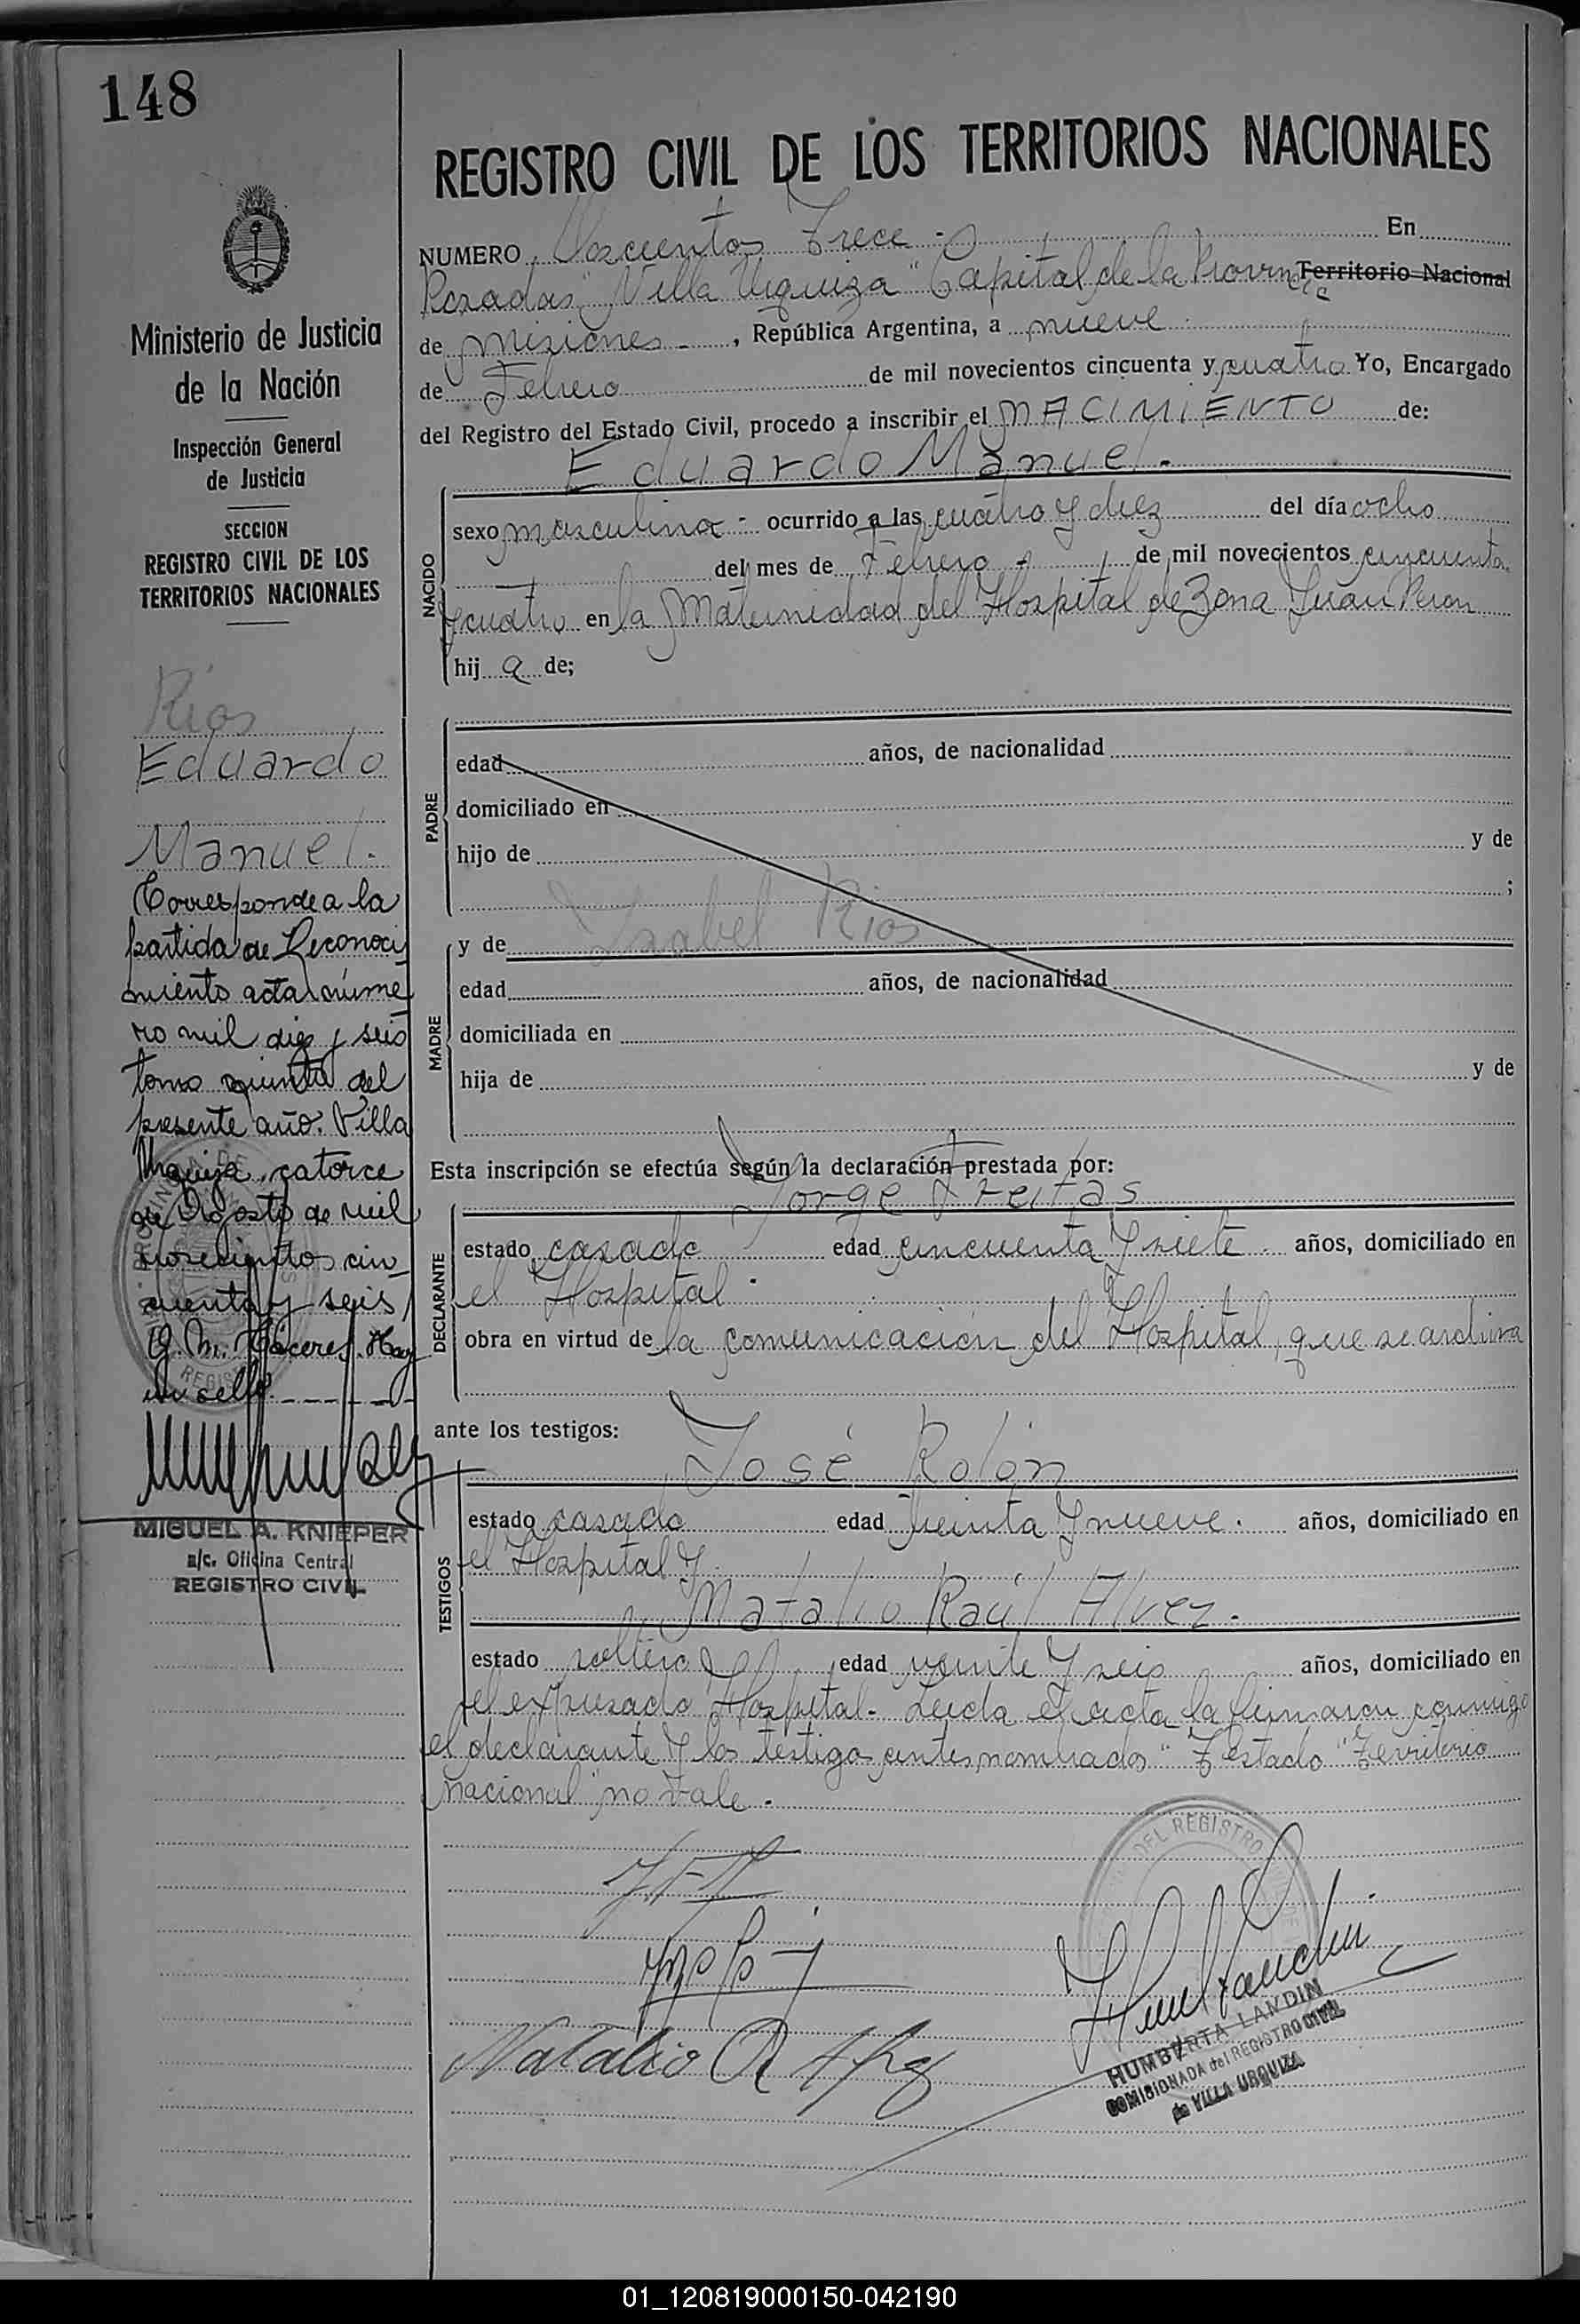 148
Ministerio de Justicia
de la Nación
Inspección General
de Justicia
SECCION
REGISTRO CIVIL DE LOS
TERRITORIOS NACIONALES
Ríos
Eduardo
Manuel.
Corresponde a la
partida de Reconoci
miento acta núme
ro mil diez y seis
tomo quinto del
presente año. Villa
Urquiza, catorce
de Agosto de mil
novecientos cin
cuenta y seis
G. M. Cáceres. Hay
un sello.
MIGUEL A. KNIEPER
a/c. Oficina Central
REGISTRO CIVIL
REGISTRO CIVIL DE LOS TERRITORIOS NACIONALES
NUMERO Doscientos Trece - En
Posadas "Villa Urquiza" Capital de la Provincia Territorio Nacional
de Misiones - , República Argentina, a nueve
de Febrero de mil novecientos cincuenta y cuatro Yo, Encargado
del Registro del Estado Civil, procedo a inscribir el NACIMIENTO de:
Eduardo Manuel.
NACIDO
sexo masculino - ocurrido a las cuatro y diez del día ocho
del mes de Febrero - de mil novecientos cincuenta
y cuatro en la Maternidad del Hospital de Zona Juan Peron
hij o de;
PADRE
edad años, de nacionalidad
domiciliado en
hijo de y de
;
MADRE
y de Isabel Rios
edad años, de nacionalidad
domiciliada en
hija de y de
Esta inscripción se efectúa según la declaración prestada por:
Jorge Freitas
DECLARANTE
estado casado edad cincuenta y siete - años, domiciliado en
el Hospital -
obra en virtud de la comunicación del Hospital, que se archiva
ante los testigos:
José Rolón
TESTIGOS
estado casado edad treinta y nueve. años, domiciliado en
el Hospital y
Natalio Raúl Alvez.
estado soltero edad veinte y seis años, domiciliado en
el expresado Hospital. Leida el acta la firmaron conmigo
el declarante y los testigos antes nombrados "Testado "Territorio
nacional" no vale.
Natalio R Alvez
DEL REGISTRO
HUMBERTA LANDIN
COMISIONADA del REGISTRO CIVIL
de VILLA URQUIZA
01_120819000150-042190